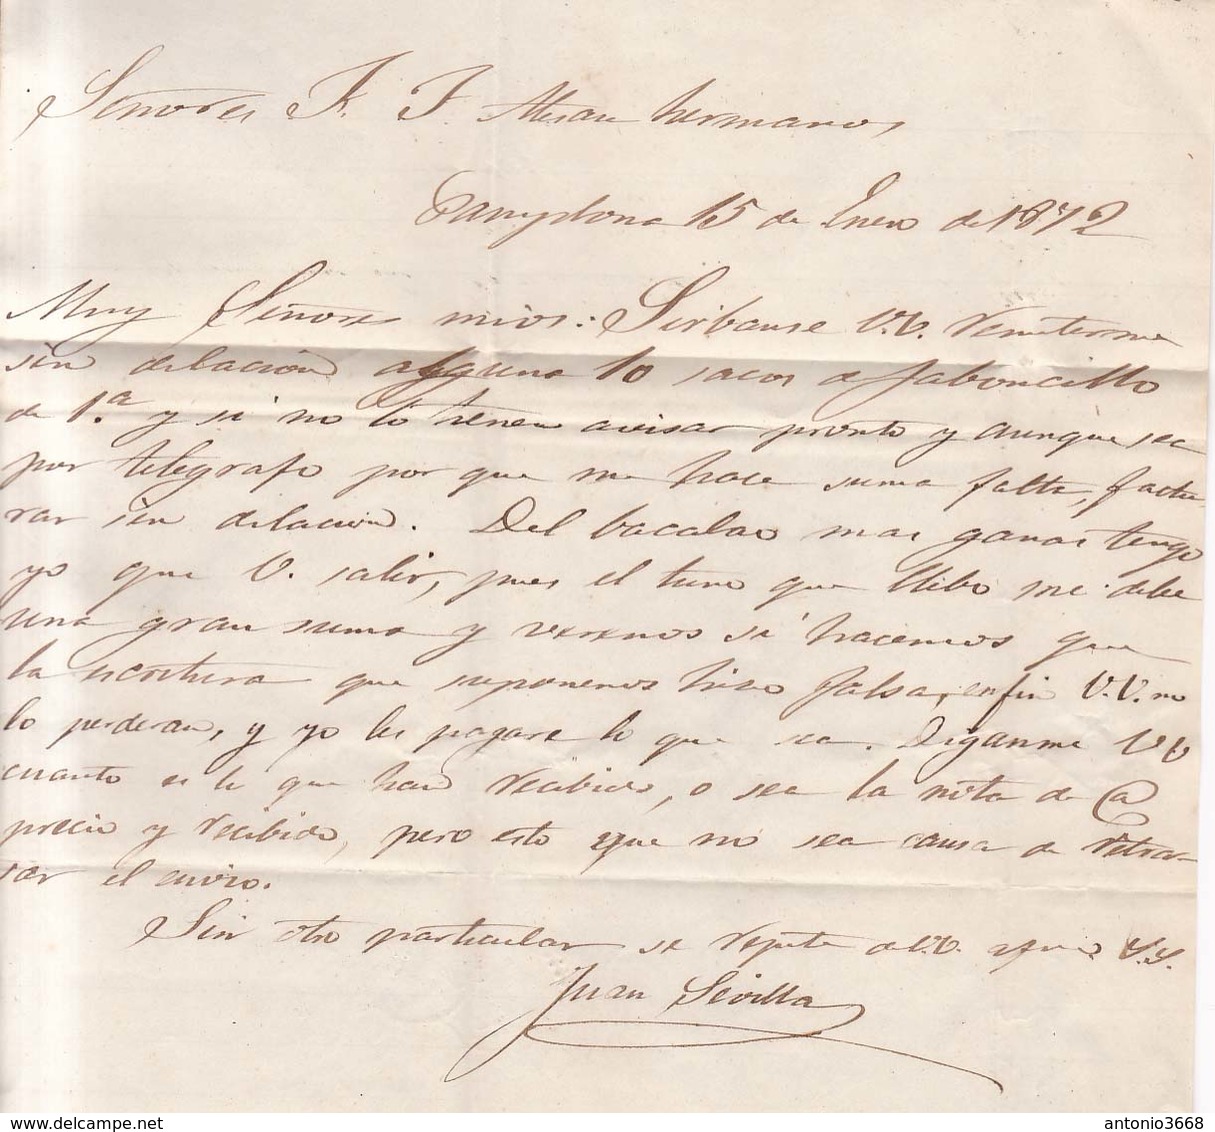 Señores F. F. Alesan hermanos
Pamplona 15 de Enero de 1872
Muy Señores mios: Sirbanse V.V. remiterme
sin dilacion alguna 10 sacos de Jaboncillo
de 1.ª y si no lo tienen avisar pronto y aunque sea
por telegrafo por que me hace suma falta, factu-
rar sin dilacion. Del bacalao mas ganas tengo
yo que V. salir, pues el tuno que llebo me debe
una gran suma y veremos si hacemos que
la escritura que suponemos hizo falsa, enfin V.V. no
lo perderan, y yo les pagare lo que sea. Diganme VV
cuanto es lo que han recibido, o sea la nota de
precio y recibido, pero esto que no sea causa de retra-
sar el envio.
Sin otro particular se repite de V.V. afmo S.S.
Juan Sevilla
antonio3668